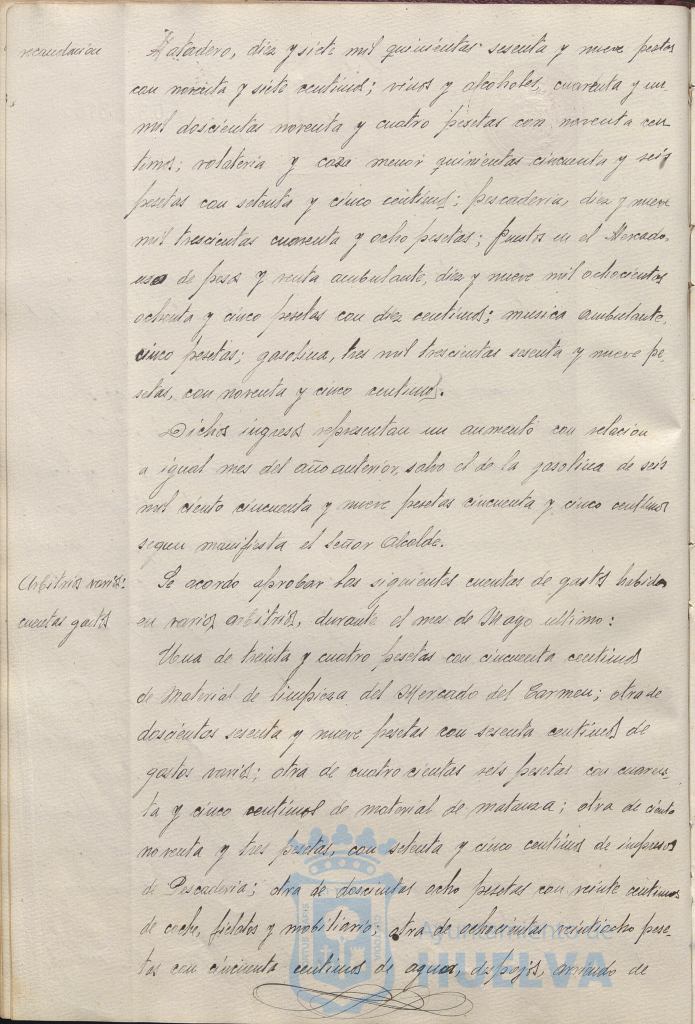 recaudacion
Matadero, diez y siete mil quinientas sesenta y nueve pesetas
con noventa y siete centimos; vinos y alcoholes, cuarenta y un
mil doscientas noventa y cuatro pesetas con noventa cen-
timos; volateria y caza menor quinientas cincuenta y seis
pesetas con setenta y cinco centimos; pescaderia, diez y nueve
mil trescientas cuarenta y ocho pesetas; puestos en el Mercado,
uso de pesas y venta ambulante, diez y nueve mil ochocientas
ochenta y cinco pesetas con diez centimos; musica ambulante,
cinco pesetas; gasolina, tres mil trescientas sesenta y nueve pe-
setas, con noventa y cinco centimos.
Dichos ingresos representan un aumento con relacion
a igual mes del año anterior, salvo el de la gasolina de seis
mil ciento cincuenta y nueve pesetas cincuenta y cinco centimos
segun manifiesta el Señor Alcalde.
Arbitrios varios:
cuentas gastos
Se acordo aprobar las siguientes cuentas de gastos habidos
en varios arbitrios, durante el mes de Mayo ultimo:
Una de treinta y cuatro pesetas con cincuenta centimos
de Material de limpieza del Mercado del Carmen; otra de
doscientas sesenta y nueve pesetas con sesenta centimos de
gastos varios; otra de cuatrocientas seis pesetas con cuaren-
ta y cinco centimos de material de matanza; otra de ciento
noventa y tres pesetas, con setenta y cinco centimos de impresos
de Pescaderia; otra de doscientas ocho pesetas con veinte centimos
de coche, fielatos y mobiliario; otra de ochocientas veintiocho pese-
tas con cincuenta centimos de agua, despojos, arriendo de
Ayuntamiento de
HUELVA